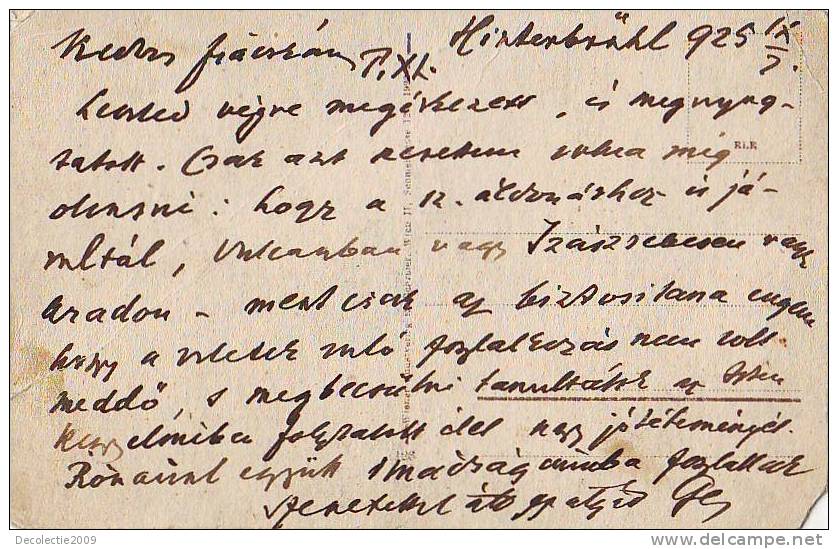 Hinterbrühl 925 IX/3.
Kedves fiacskám
P. XI.
Leveled végre megérkezett, és megnyug-
tatott. Csak azt szerettem volna még
olvasni: hogy a sz. áldozáshoz is já-
rultál, Vulcanban vagy Szászsebesen vagy
Aradon - mert csak az biztosítana engem
hogy a veletek való foglalkozás nem volt
meddő, s megbecsülni tanultátok az Isten
kegyelmiben folytatott élet nagy jótéteményét.
együtt imádságomba foglallak
szeretettel
Decolectie2009
www.delcampe.net